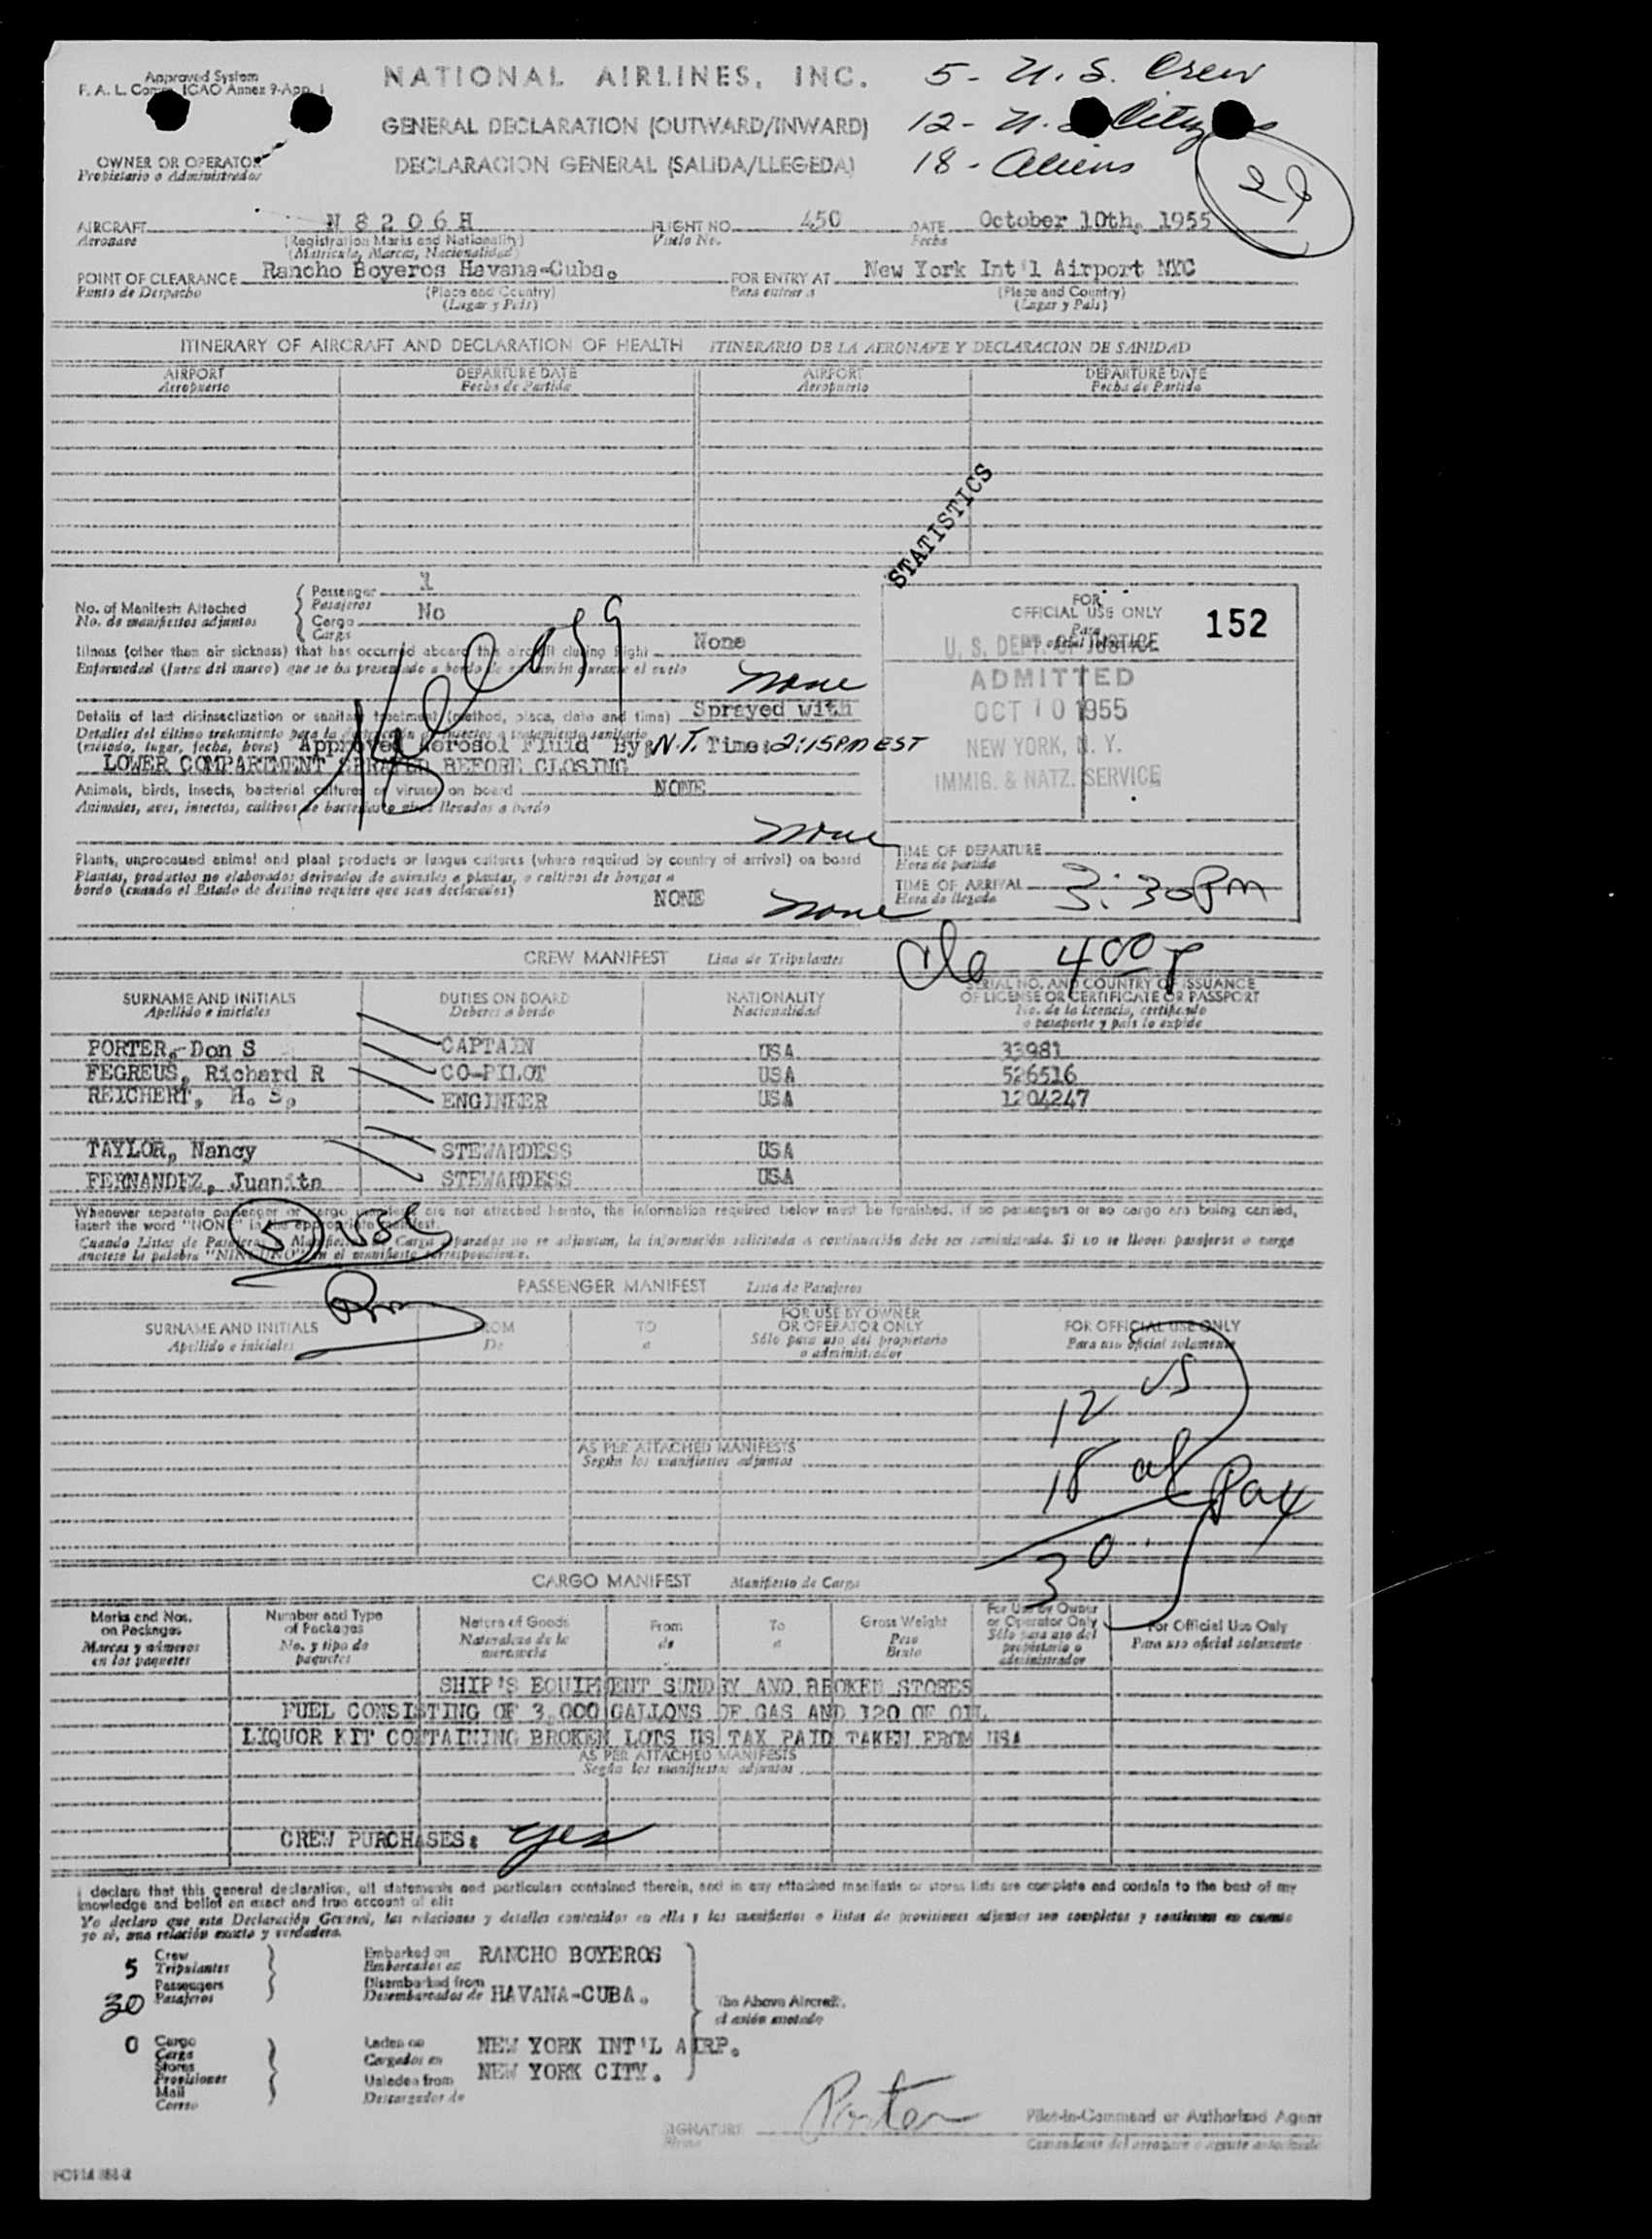 Approved System
F. A. L. Comm. ICAO Annex 9-App. 1
NATIONAL AIRLINES, INC.
5 - U. S. Crew
GENERAL DECLARATION (OUTWARD/INWARD)
12 - U.
18 - Aliens
29
OWNER OR OPERATOR
Propietario o Administrador
DECLARACION GENERAL (SALIDA/LLEGEDA)
AIRCRAFT N 8 2 0 6 H FLIGHT NO. 450 DATE October 10th, 1955
Aeronave (Registration Marks and Nationality) Vuelo No. Fecha
(Matricula, Marcas, Nacionalidad)
POINT OF CLEARANCE Rancho Boyeros Havana-Cuba. FOR ENTRY AT New York Int'l Airport NYC
Punto de Despacho (Place and Country) Para entrar a (Place and Country)
(Lugar y País) (Lugar y País)
ITINERARY OF AIRCRAFT AND DECLARATION OF HEALTH ITINERARIO DE LA AERONAVE Y DECLARACION DE SANIDAD
AIRPORT DEPARTURE DATE AIRPORT DEPARTURE DATE
Aeropuerto Fecha de Partida Aeropuerto Fecha de Partida
STATISTICS
No. of Manifests Attached
No. de manifiestos adjuntos
Passenger 1
Pasajeros
Cargo No
Carga
Illness (other than air sickness) that has occurred aboard this aircraft during flight None
Enfermedad (fuera del mareo) que se ha presentado a bordo de durante el vuelo
none
Details of last disinsectization or sanitary treatment (method, place, date and time) Sprayed with
Detalles del último tratamiento para la o tratamiento sanitario
(método, lugar, fecha, hora) Approved Aerosol Fluid By: N.T. Time: 2:15PM EST
LOWER COMPARTMENT SPRAYED BEFORE CLOSING
Animals, birds, insects, bacterial cultures or viruses on board NONE
Animales, aves, insectos, cultivos de llevados a bordo
none
Plants, unprocessed animal and plant products or fungus cultures (where required by country of arrival) on board
Plantas, productos no elaborados derivados de animales o plantas, o cultivos de hongos a
bordo (cuando el Estado de destino requiere que sean declarados) NONE
none
FOR
OFFICIAL USE ONLY
Para
152
U. S. DEPT. OF JUSTICE
ADMITTED
OCT 10 1955
NEW YORK, N. Y.
IMMIG. & NATZ. SERVICE
TIME OF DEPARTURE
Hora de partida
TIME OF ARRIVAL 3:30 Pm
Hora de llegada
400 P
CREW MANIFEST Lista de Tripulantes
SURNAME AND INITIALS DUTIES ON BOARD NATIONALITY SERIAL NO. AND COUNTRY OF ISSUANCE
OF LICENSE OR CERTIFICATE OR PASSPORT
Apellido e iniciales Deberes a bordo Nacionalidad No. de la licencia, certificado
o pasaporte y país lo expide
PORTER, Don S CAPTAIN USA 33981
FEGREUS, Richard R CO-PILOT USA 526516
REICHERT, H. S. ENGINEER USA 1204247
TAYLOR, Nancy STEWARDESS USA
FERNANDEZ, Juanita STEWARDESS USA
Whenever separate passenger or cargo manifests are not attached hereto, the information required below must be furnished, if no passengers or no cargo are being carried,
insert the word "NONE" in the appropriate manifest.
Cuando Listas de Pasajeros o Manifiestos de Carga separados no se adjuntan, la información solicitada a continuación debe ser suministrada. Si no se lleven pasajeros o carga
anotese la palabra "NINGUNO" en el manifiesto correspondiente.
5
PASSENGER MANIFEST Lista de Pasajeros
SURNAME AND INITIALS FROM TO FOR USE BY OWNER
OR OPERATOR ONLY FOR OFFICIAL USE ONLY
Apellido e iniciales De a Sólo para uso del propietario
o administrador Para uso oficial solamente
12 US
AS PER ATTACHED MANIFESTS
Según los manifiestos adjuntos
18 al
Pax
30
CARGO MANIFEST Manifiesto de Carga
Marks and Nos.
on Packages
Marcas y números
en los paquetes
Number and Type
of Packages
No. y tipo de
paquetes
Nature of Goods
Naturaleza de la
mercancía
From
de
To
a
Gross Weight
Peso
Bruto
For Use by Owner
or Operator Only
Sólo para uso del
propietario o
administrador
For Official Use Only
Para uso oficial solamente
SHIP'S EQUIPMENT SUNDRY AND BROKEN STORES
FUEL CONSISTING OF 3,000 GALLONS OF GAS AND 120 OF OIL
LIQUOR KIT CONTAINING BROKEN LOTS US TAX PAID TAKEN FROM USA
AS PER ATTACHED MANIFESTS
Según los manifiestos adjuntos
CREW PURCHASES: yes
I declare that this general declaration, all statements and particulars contained therein, and in any attached manifests or stores lists are complete and contain to the best of my
knowledge and belief an exact and true account of all:
Yo declaro que esta Declaración General, las relaciones y detalles contenidos en ella y los manifiestos o listas de provisiones adjuntos son completos y contienen en cuanto
yo sé, una relación exacta y verdadera.
5 Crew
Tripulantes
30 Passengers
Pasajeros
Embarked on RANCHO BOYEROS
Embarcados en
Disembarked from HAVANA-CUBA.
Desembarcados de
The Above Aircraft,
el avión anotado
0 Cargo
Carga
Stores
Provisiones
Mail
Correo
Laden on NEW YORK INT'L AIRP.
Cargados en
Unladen from NEW YORK CITY.
Descargados de
SIGNATURE Porter Pilot-in-Command or Authorized Agent
Firma Comandante del aeronave o agente autorizado